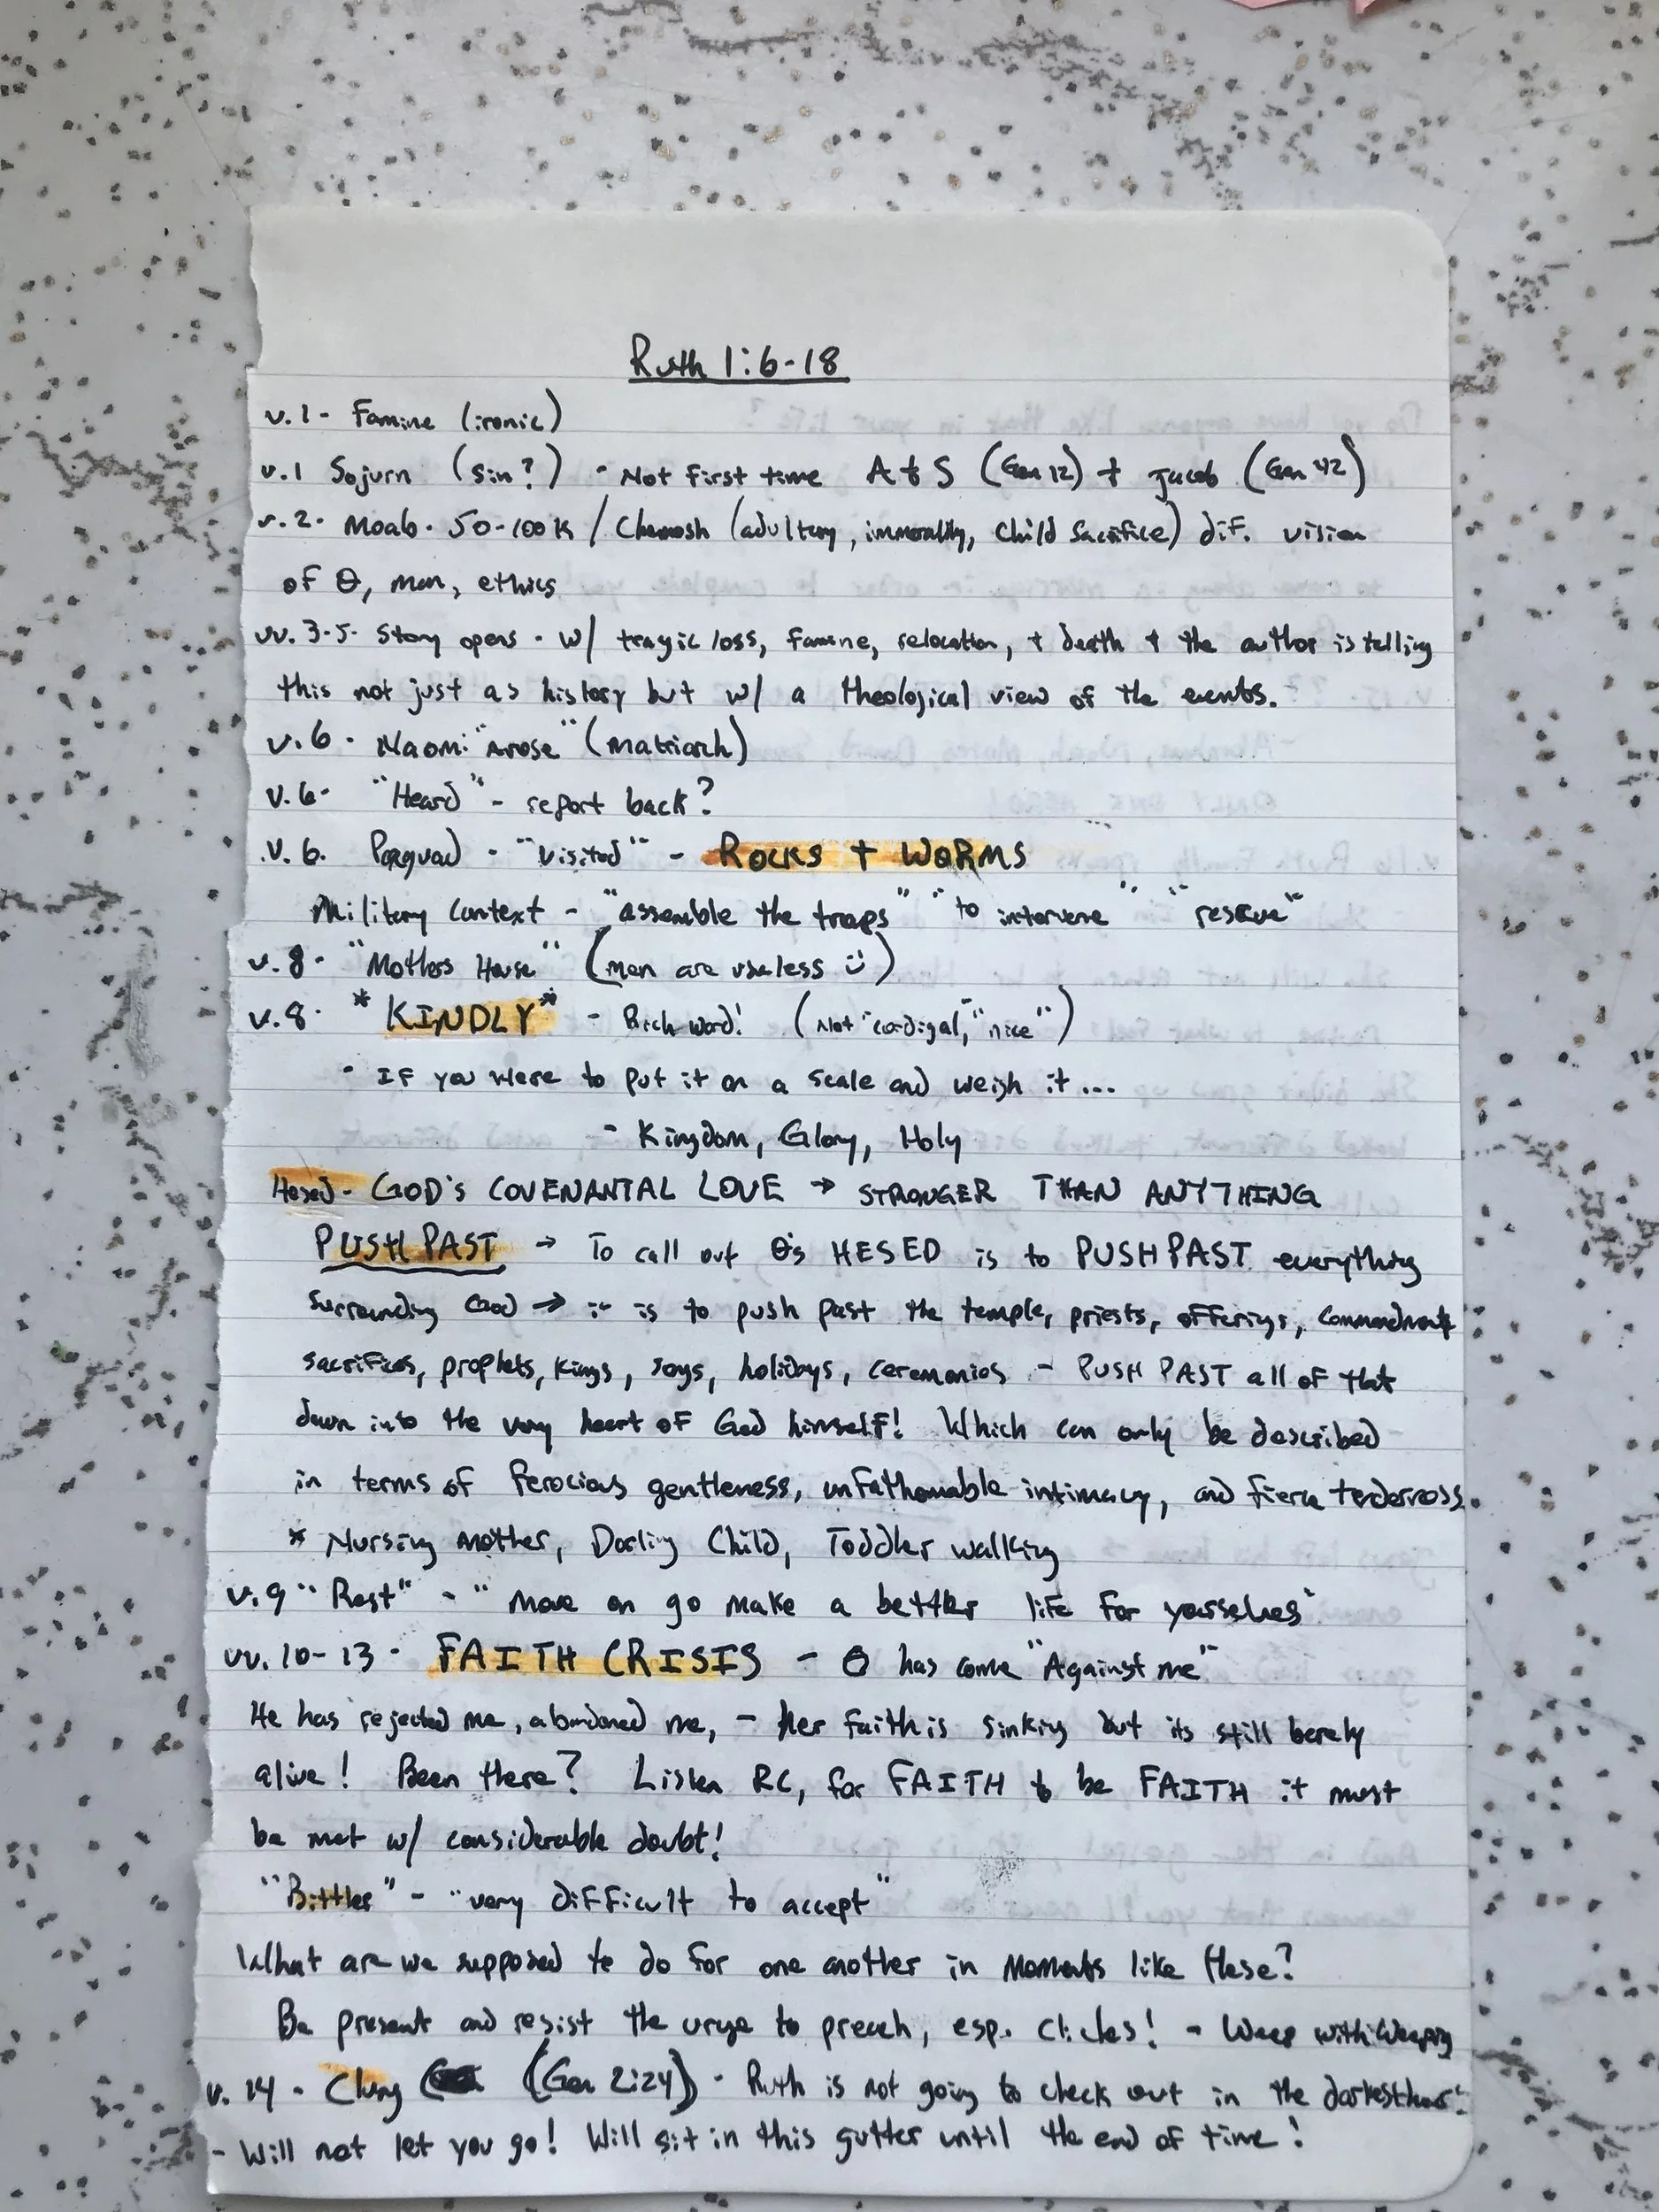 Ruth 1:6-18
v.1 - Famine (ironic)
v.1 Sojurn (sin?) - Not first time A & S (Gen 12) + Jacob (Gen 42)
v.2. Moab. 50-100K / Chemosh (adultery, immorality, child sacrifice) dif. vision
of Θ, man, ethics
vv. 3-5. Story opens - w/ tragic loss, famine, relocation, + death + the author is telling
this not just as history but w/ a theological view of the events.
v.6 - Naomi "Arose" (matriarch)
v.6 - "Heard" - report back?
v.6. Paquad - "Visited" - ROCKS + WORMS
Military Context - "assemble the troops" "to intervene" "rescue"
v.8 - "Mothers House" (men are useless :))
v.8 - *KINDLY* - Rich word! (Not "cordigal," "nice")
- IF you were to put it on a scale and weigh it...
- Kingdom, Glory, Holy
Hesed - GOD's COVENANTAL LOVE → STRONGER THAN ANYTHING
PUSH PAST → To call out Θ's HESED is to PUSH PAST everything
surrounding God → it is to push past the temple, priests, offerings, commandments
sacrifices, prophets, kings, songs, holidays, ceremonies - PUSH PAST all of that
down into the very heart of God himself! Which can only be described
in terms of ferocious gentleness, unfathomable intimacy, and fierce tenderness.
* Nursing mother, Darling Child, Toddler walking
v.9 "Rest" - "move on go make a better life for yourselves"
vv. 10-13 - FAITH CRISIS - Θ has come "Against me"
He has rejected me, abandoned me, - her faith is sinking but its still barely
alive! Been there? Listen RC, for FAITH to be FAITH it must
be met w/ considerable doubt!
"Bitter" - "very difficult to accept"
What are we supposed to do for one another in moments like these?
Be present and resist the urge to preach, esp. cliches! - Weep with Weeping
v. 14 - Clung (Gen 2:24) - Ruth is not going to check out in the darkest hour!
- Will not let you go! Will sit in this gutter until the end of time!